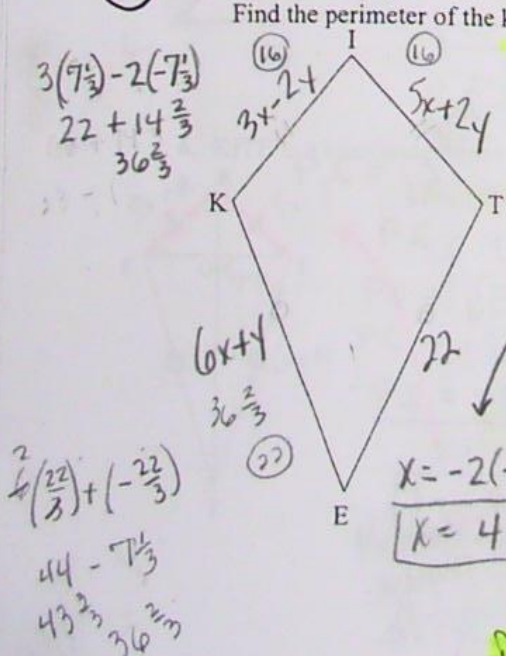 Find the perimeter of the
3(7 1/3) - 2(-7 1/3)
22 + 14 2/3
36 2/3
16
I
16
3x - 2y
5x + 2y
K
T
6x + y
36 2/3
22
22
E
2
(22/3) + (-22/3)
44 - 7 1/3
43 3/3
36 2/3
x = -2(-
x = 4